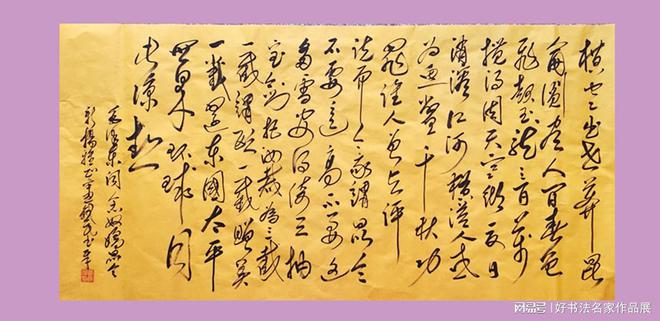 横空出世莽昆
侖閱尽人间春色
飛起玉龍三百萬
搅得周天寒彻夏日
消溶江河横溢人或
为鱼鳖千秋功
罪谁人曾与评
说而今我谓昆仑
不要这高不要这
多雪安得倚天抽
宝剑把汝裁为三截
一截遗欧一截赠美
一截還东國太平
世界环球同
此凉热
毛泽东词念奴娇昆仑
搜狐号@好书法名家作品展